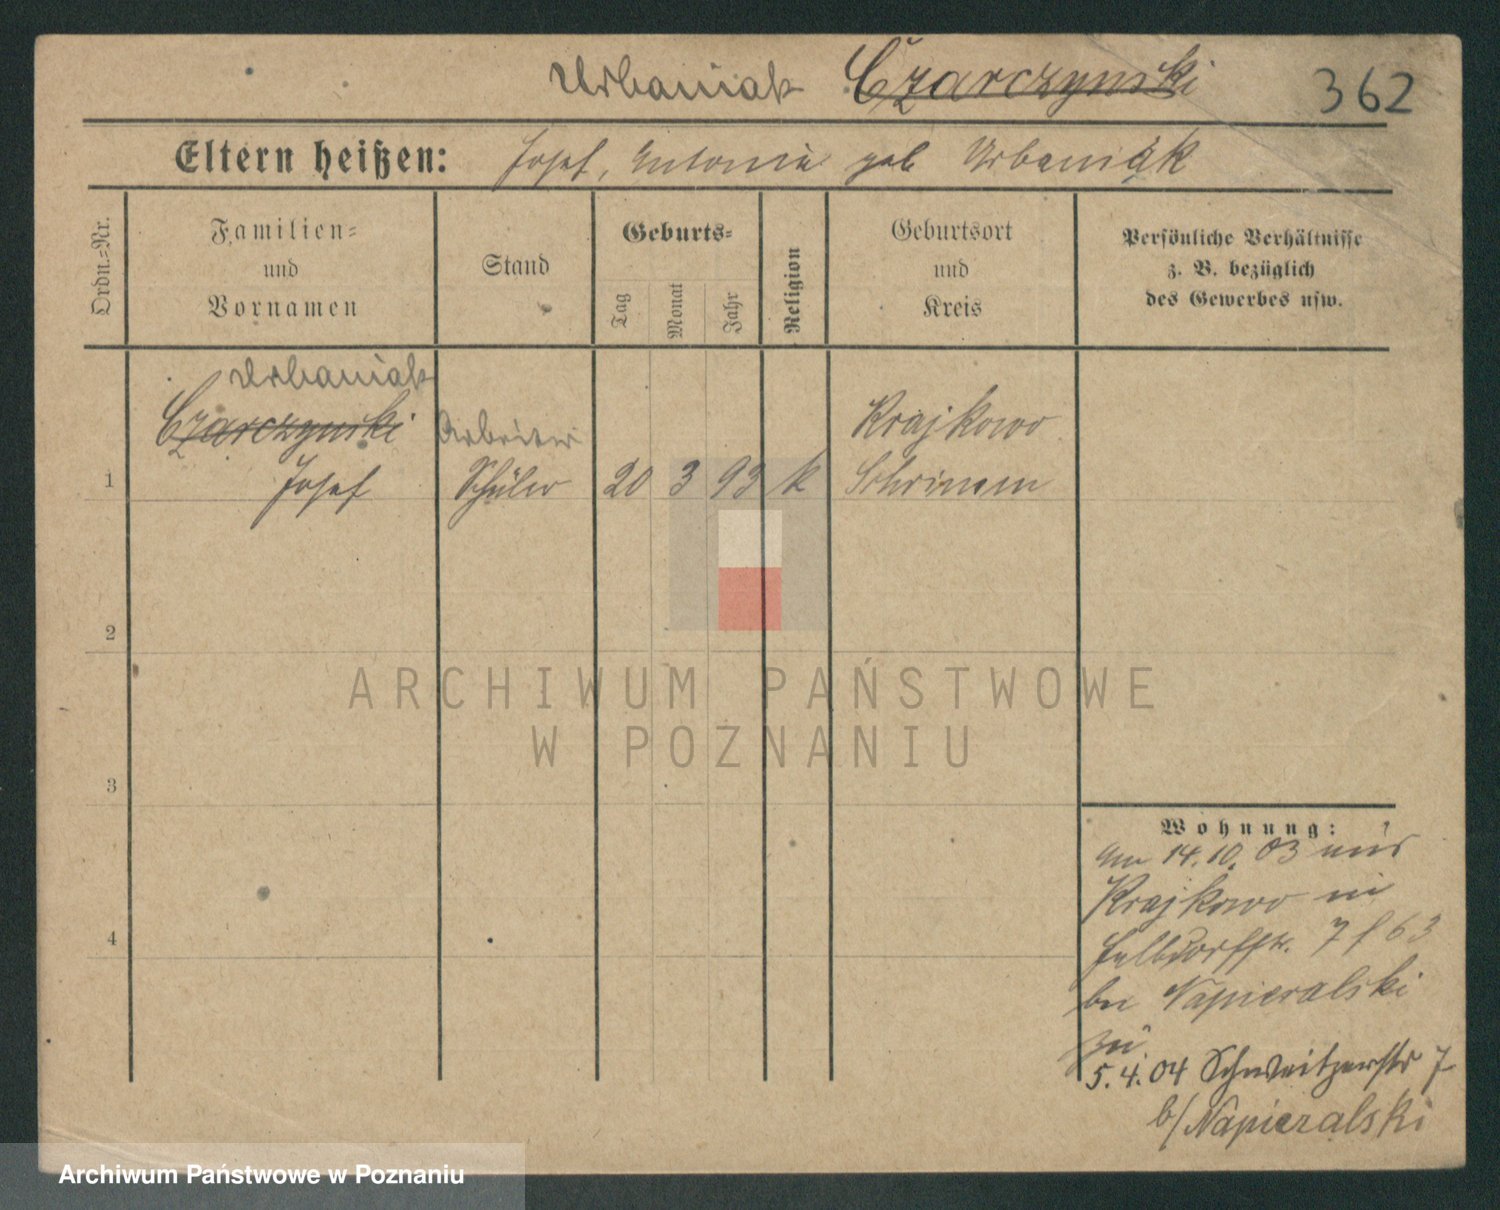 Urbaniak Czarczynski 362
Eltern heißen: Josef, Antonie geb Urbaniak
Ordn.-Nr.
Familien-
und
Vornamen
Stand
Geburts-
Tag
Monat
Jahr
Religion
Geburtsort
und
Kreis
Persönliche Verhältnisse
z. B. bezüglich
des Gewerbes usw.
Urbaniak
Czarczynski Arbeiter Krajkowo
1 Josef Schüler 20 3 93 k Schrimm
2
ARCHIWUM PAŃSTWOWE
W POZNANIU
3
4
Wohnung:
Am 14.10.03 aus
Krajkowo in
7 63
bei Napieralski
zu
5.4.04 Schweitzerstr 7
b/Napieralski
Archiwum Państwowe w Poznaniu